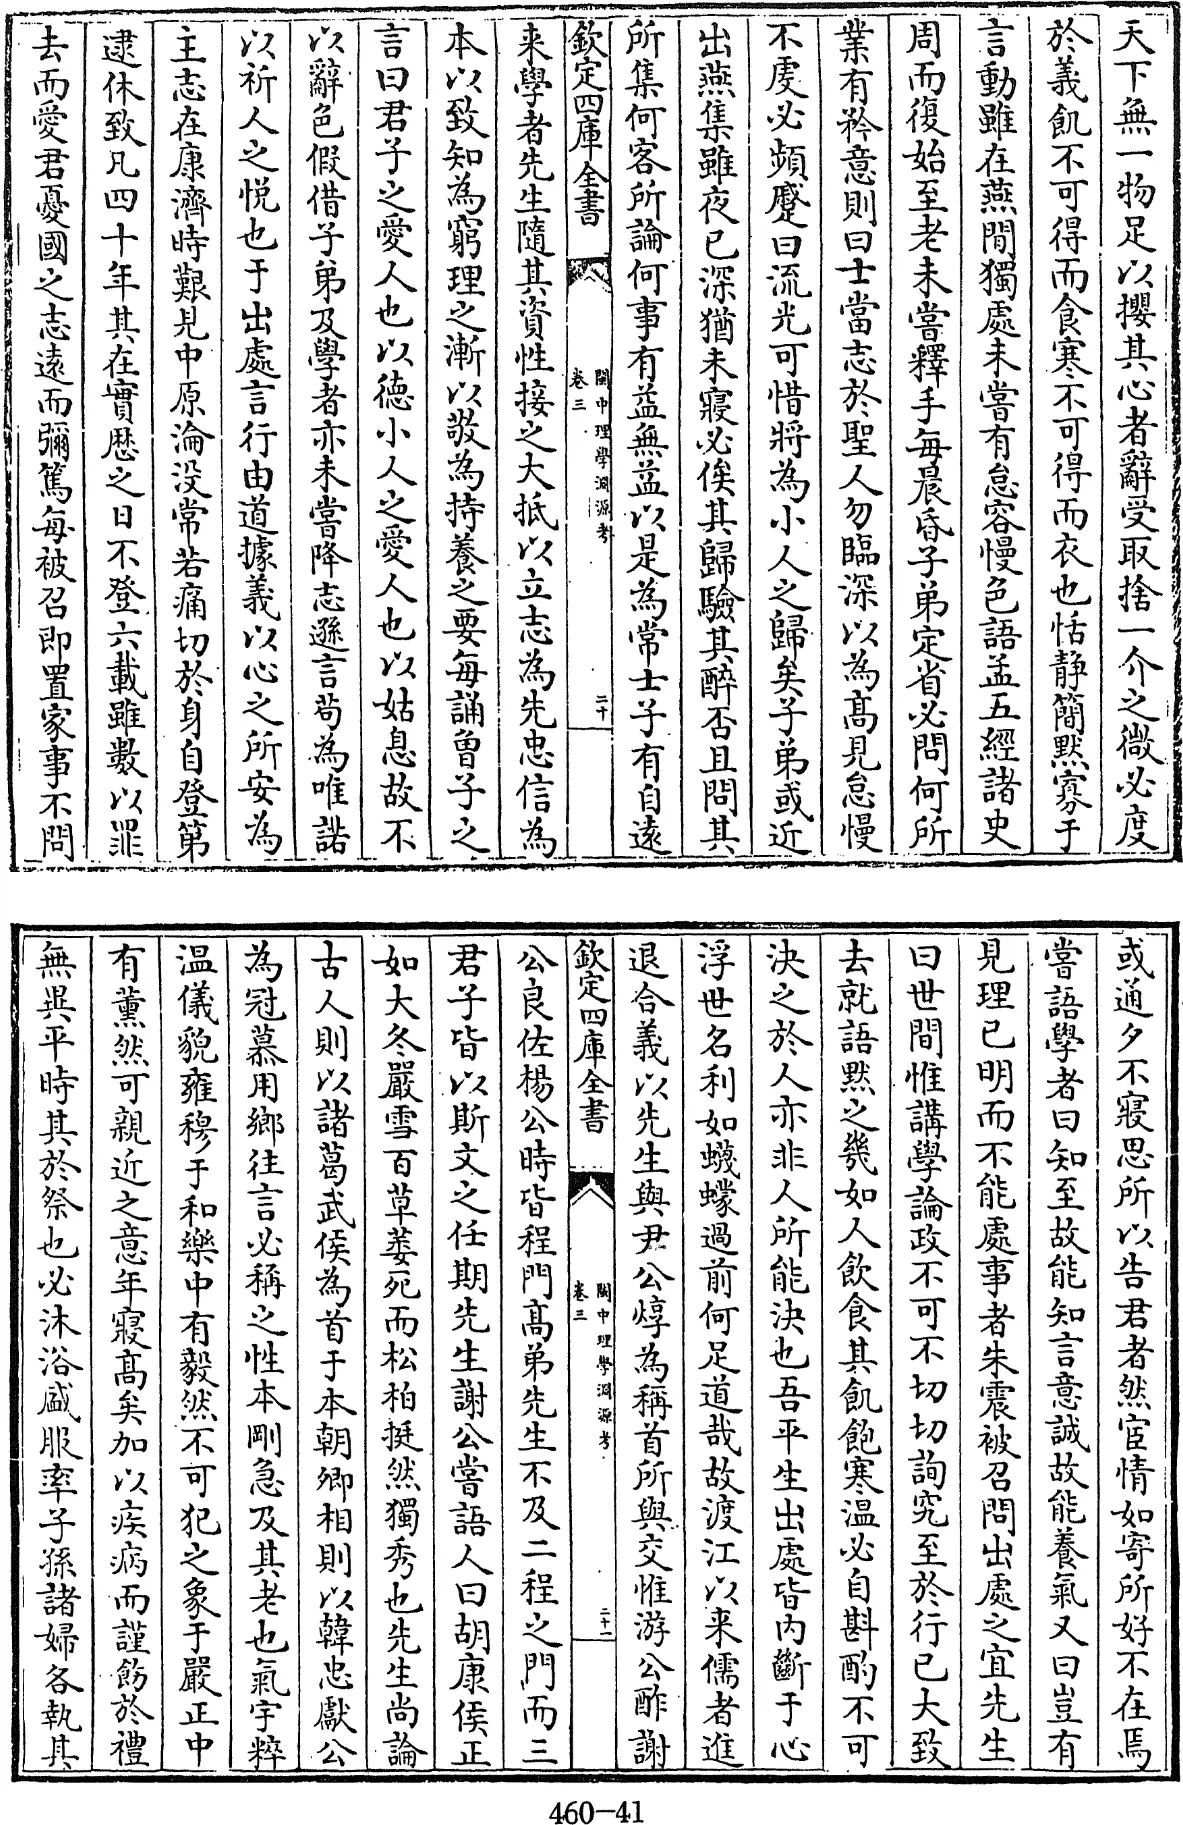 天下無一物足以攖其心者辭受取捨一介之微必度
於義飢不可得而食寒不可得而衣也恬静簡黙寡于
言動雖在燕閒獨處未嘗有怠容慢色語孟五經諸史
周而復始至老未嘗釋手每晨昏子弟定省必問何所
業有矜意則曰士當志於聖人勿臨深以為髙見怠慢
不虔必頻蹙曰流光可惜將為小人之歸矣子弟或近
出燕集雖夜已深猶未寢必俟其歸驗其醉否且問其
所集何客所論何事有益無益以是為常士子有自遠
欽定四庫全書
閩中理學淵源考
卷三
二十
来學者先生隨其資性接之大抵以立志為先忠信為
本以致知為窮理之漸以敬為持養之要每誦曾子之
言曰君子之愛人也以德小人之愛人也以姑息故不
以辭色假借子弟及學者亦未嘗降志遜言茍為唯諾
以祈人之悦也于出處言行由道據義以心之所安為
主志在康濟時艱見中原淪没常若痛切於身自登第
逮休致凡四十年其在實歴之日不登六載雖數以罪
去而愛君憂國之志遠而彌篤每被召即置家事不問
或通夕不寢思所以告君者然宦情如寄所好不在焉
嘗語學者曰知至故能知言意誠故能養氣又曰豈有
見理已明而不能處事者朱震被召問出處之宜先生
曰世間惟講學論政不可不切切詢究至於行已大致
去就語黙之幾如人飲食其飢飽寒温必自斟酌不可
決之於人亦非人所能決也吾平生出處皆内斷于心
浮世名利如蠛蠓過前何足道哉故渡江以来儒者進
退合義以先生與尹公焞為稱首所與交惟游公酢謝
欽定四庫全書
閩中理學淵源考
卷三
二十一
公良佐楊公時皆程門髙弟先生不及二程之門而三
君子皆以斯文之任期先生謝公嘗語人曰胡康侯正
如大冬嚴雪百草萎死而松柏挺然獨秀也先生尚論
古人則以諸葛武侯為首于本朝卿相則以韓忠獻公
為冠慕用鄉往言必稱之性本剛急及其老也氣宇粹
温儀貌雍穆于和樂中有毅然不可犯之象于嚴正中
有薰然可親近之意年寢髙矣加以疾病而謹飭於禮
無異平時其於祭也必沐浴盛服率子孫諸婦各執其
460-41